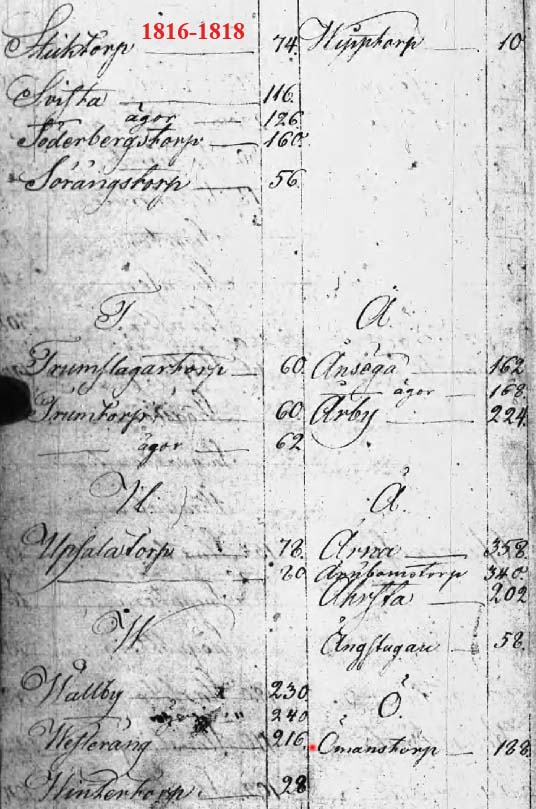 1816-1818
Sticktorp 74
Svista 116
ägor 126
Söderbergstorp 160
Sörängstorp 56
T.
Trumslagartorp 60
Trumtorp 60
ägor 62
U
Upsalatorp 78
80
W
Wallby 230
240
Westeräng 216
Wintertorp 28
Wipptorp 10
Å.
Ånsöga 162
ägor 168
Årby 224
Ä.
Ärna 358
340
202
Ängstugan 58
Ö.
Ömanstorp 188